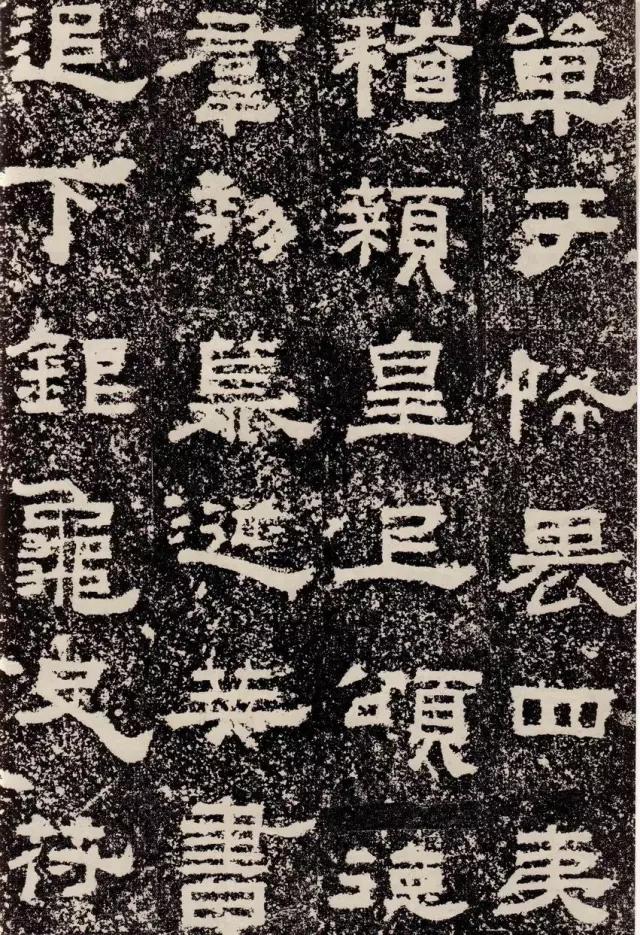 單于怖畏四夷
稽顙皇上頌德
羣黎慕涎策書
追下銀龜史符